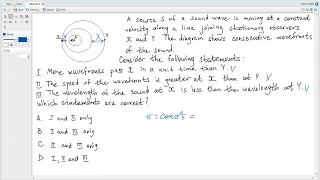 A source S of a sound wave is moving at a constant
velocity along a line joining stationary observers
X and Y. The diagram shows consecutive wavefronts
of the sound.
X
Y
Consider the following statements:
I More wavefronts pass X in a unit time than Y. V
II The speed of the wavefronts is greater at X than at Y.
III The wavelength of the sound at X is less than the wavelength at Y. V
Which statements are correct?
A. I and II only
B. I and III only
C. II and III only
D. I, II and III
v = const =